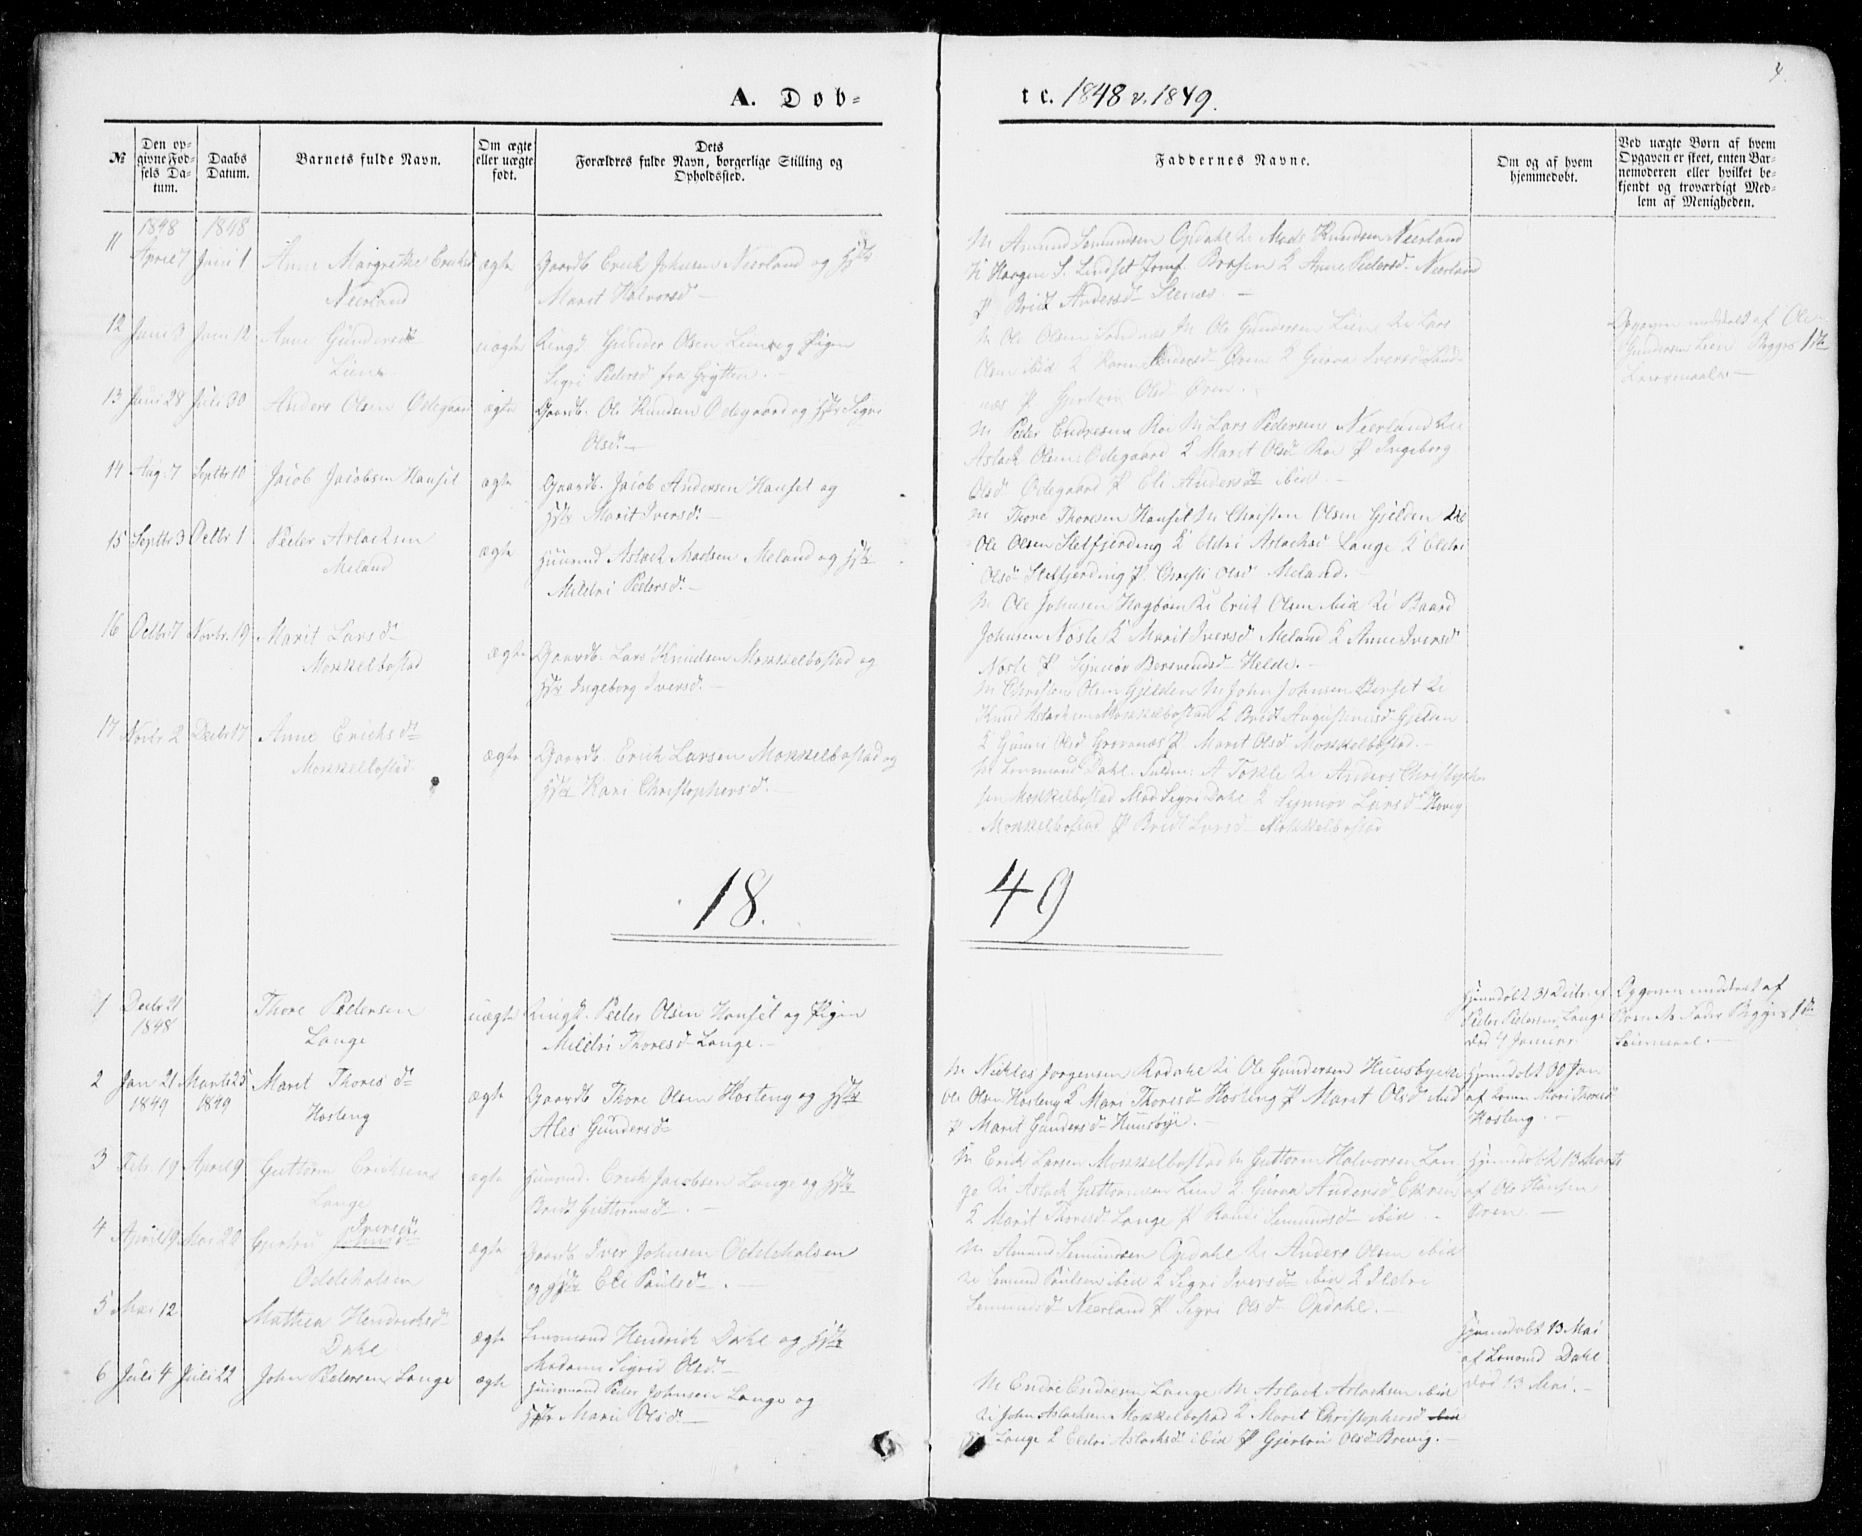 A. Dob-
te. 1848 & 1849.
4
№
Den op-
givne Fød-
sels Da-
tum.
Daabs
Datum.
Barnets fulde Navn.
Om ægte
eller uægte
født.
Dets
Forældres fulde Navn, borgerlige Stilling og
Opholdssted.
Faddernes Navne.
Om og af hvem
hjemmedøbt.
Ved uægte Børn af hvem
Opgaven er skeet, enten Bar-
nemoderen eller hvilket be-
kjendt og troværdigt Med-
lem af Menigheden.
1848 1848
11 April 7 Juni 1 Anne Margrethe Ericksd
Neerland
ægte
Gaardb. Erick Johnsen Neerland og Hstr
Marit Halvorsd
M Amund Semundsen Opdahl Mads Knudsen Neerland
Lindset Jomf. Brosen K Anne Pedersd. Neerland
P Brit Andersd
12 Juni 3 Juni 12 Anne Gundersd
Lien
uægte
Ungk. Gunder Olsen Lien og Pigen
Segri Pedersd fra
M Ole Olsen M Ole Gundersen Lien Lars
Olsen ibid K Karen Øren K Iversd
P Gjertrui Olsd Øren.
Opgaven meddelt af Ole
Gundersen Lien Begges 1ste
13 Juni 28 Juli 30 Anders Olsen Ødegaard
ægte
Gaardb. Ole Knudsen Ødegaard og Hstr Segri
Olsd.
M Peder Endresen Roe M Lars Pedersen Neerland
Aslack Olsen Ødegaard K Marit Olsd Roe P Ingeborg
Olsd Ødegaard P Eli Andersd ibid
14 Aug. 7 Septbr 10 Jacob Jacobsen Hanset
ægte
Gaardb. Jacob Andersen Hanset og
Hstr Marit Iversd.
M Thore Thoresen Hanset M Christen Olsen Gjelden
Ole Olsen Stetfjerding K Eldri Aslacksd Lange K Eldri
Olsd Stetfjerding P Christi Olsd Meland.
15 Septbr 3 Octbr 1 Peder Aslacksen
Meland
ægte
Huusmd Aslack Madsen Meland og Hstr
Mildri Pedersd.
M Ole Johnsen Hagbøen Erick Olsen ibid Baard
Johnsen Nøsle K Marit Iversd Meland K Anne Iversd
Nøsle P Synnøv Bersvendsd Helde.
16 Octbr 7 Novbr. 19 Marit Larsd
Mokkelbostad
ægte
Gaardb. Lars Knudsen Mokkelbostad og
Hstr Ingeborg Iversd.
M Christen Olsen Gjelden M John Johnsen Benset
Knud Aslacksen Mokkelbostad K Brit Augustinusd Gjelden
K Gunni Olsd P Marit Olsd Mokkelbostad.
17 Novbr 2 Decbr 17 Anne Ericksd
Mokkelbostad.
ægte
Gaardb. Erick Larsen Mokkelbostad og
Hstr Kari Christophersd.
M Lensmand Dahl. A Tokle Anders Christopher
sen Mokkelbostad Mad Segri Dahl K Synnøv Larsd
Mokkelbostad P Brit Larsd Mokkelbostad
18. 49
1 Decbr 31
1848
Thore Pedersen
Lange
uægte
Ungk. Peder Olsen Hanset og Pigen
Mildri Thoresd Lange.
Hjemdøbt 31 Decbr. af
Peder Pedersen Lange
død 4 Januar
Opgaven meddelt af
Fader Begges 1ste
Leiermaal.
2 Jan 21 Marts 25
1849 1849
Marit Thoresd
Hosteng
ægte
Gaardb Thore Olsen Hosteng og Hstr
Ales Gundersd
M Nickles Jørgensen Rødahl Ole Gundersen Huusbye
Ole Olsen Hosteng K Mari Thoresd Hosteng P Marit Olsd ibid
P Marit Gundersd Huusbye.
Hjemdøbt 30 Jan
af Mari Thoresd
Hosteng.
3 Febr. 19 April 9 Guttorm Ericksen
Lange
ægte
Huusmd. Erick Jacobsen Lange og Hstr
Brit Guttormsd.
M Erick Larsen Mokkelbostad M Guttorm Halvorsen Lan-
ge Aslack Guttormsen Lien K Andersd
K Marit Thoresd Lange P Randi Semundsd ibid
Hjemdøbt 13 Marts
af Ole Hansen
Øren.
4 April 19 Mai 20 Gjertru Iversd
Oddeholsen
ægte
Gaardb Iver Johnsen Oddeholsen
og Hstr Eli Paulsd.
M Amund Semundsen Opdahl Anders Olsen ibid
Semund Paulsen ibid K Segri Iversd ibid K Ildri
Semundsd Neerland P Segri Olsd Opdahl.
5 Mai 12 Mathea Hendricksd
Dahl
ægte
Lensmand Hendrick Dahl og Hstr
Madame Sigrid Olsd
Hjemdøbt 13 Mai
af Lensmd Dahl
død 13 Mai.
6 Juli 4 Juli 22 John Pedersen Lange
ægte
Huusmand Peder Johnsen Lange og
Hstr Mari Olsd.
M Endre Endresen Lange M Aslack Aslacksen ibid
John Aslacksen Mokkelbostad K Marit Christophersd ibid
Lange K Eldri Aslacksd ibid P Gjertrui Olsd Brevig.